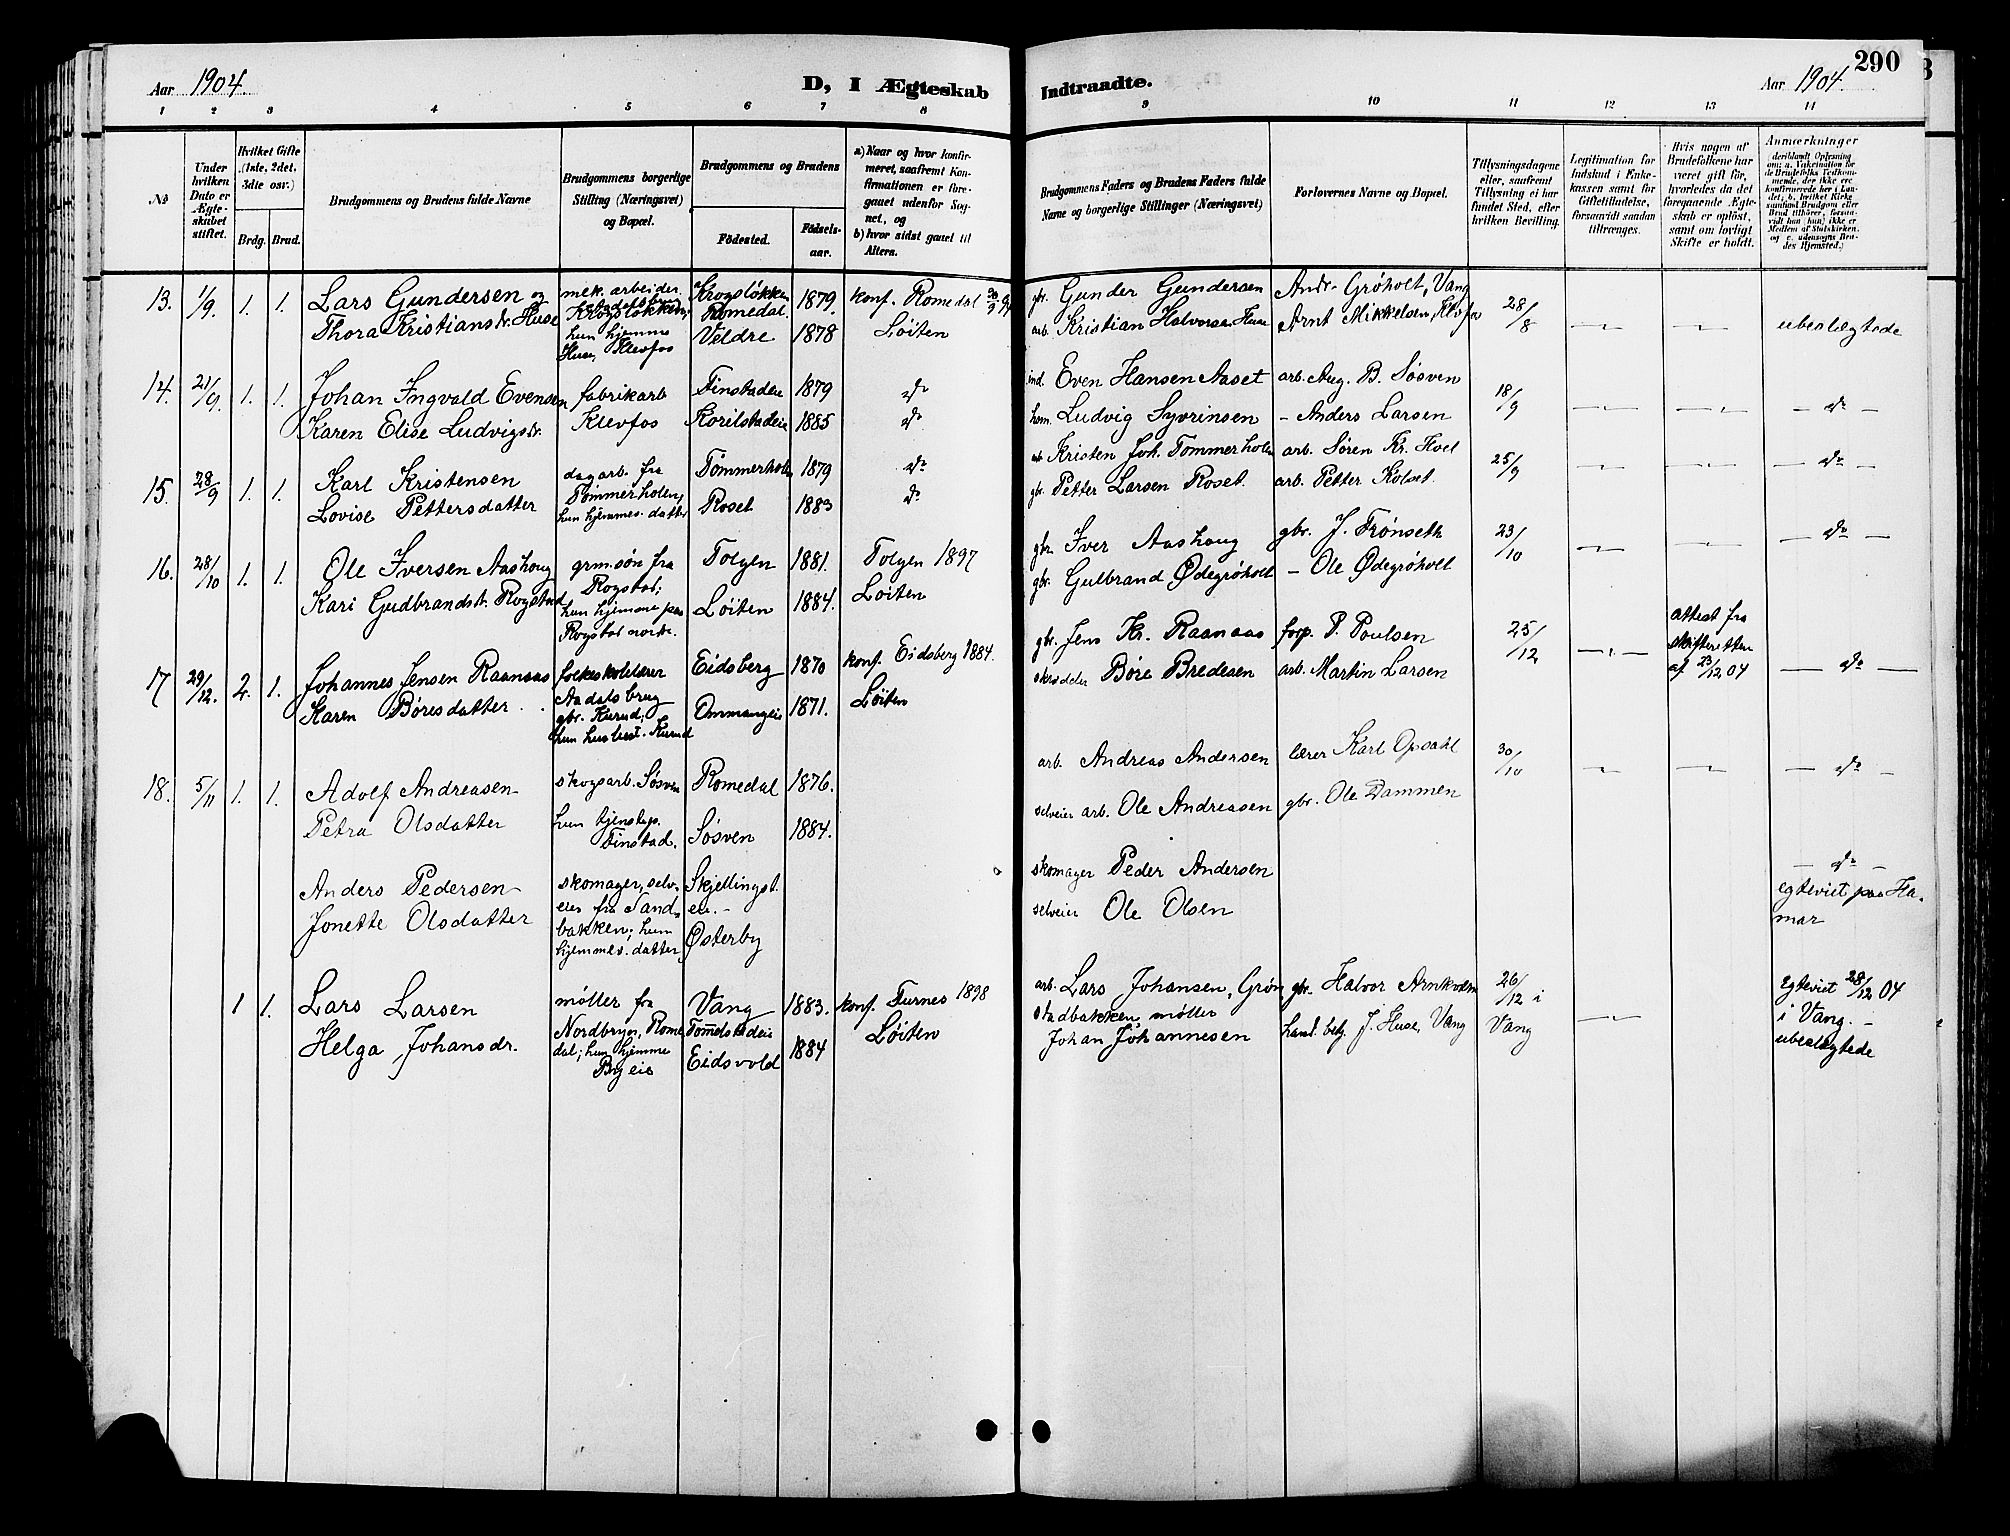 Aar 1904.
D, I Ægteskab
1 2 3 4 5 6 7 8
№
Under hvilken Dato er Ægteskabet stiftet.
Hvilket Gifte (1ste, 2det, 3die osv.)
Brdg. Brud.
Brudgommens og Brudens fulde Navne
Brudgommens borgerlige Stilling (Næringsvei) og Bopæl.
Brudgommens og Brudens
Fødested. Fødselsaar.
a) Naar og hvor konfirmeret, saafremt Konfirmationen er foregaaet udenfor Sognet, og
b) hvor sidst gaaet til Alters.
13. 1/9. 1. 1. Lars Gundersen og mek. arbeider Krogsløkken 1879. konf. Romedal
Thora Kristiansdr. Huse Krogsløkken; Romedal.
hun hjemme Veldre 1878 Løiten
Huse, Klevfos
14. 21/9. 1. 1. Johan Ingvald Evensen fabrikarb Finstadeie 1879 do
Karen Elise Ludvigsdr. Klevfos Korilstadeie 1885 do
15. 28/9 1. 1. Karl Kristensen dagarb. fra Tømmerholen 1879 do
Lovise Pettersdatter Tømmerholen; Roset 1883 do
hun hjemmev. datter
16. 28/10 1. 1. Ole Iversen Aashoug grm.søn fra Tolgen 1881. Tolgen 1897
Kari Gudbrandsdr. Rogstad Rogstad; Løiten 1884. Løiten
hun hjemme paa
Rogstad nordr.
17 29/12. 2. 1. Johannes Jensen Raanaas folkeskolelærer Eidsberg 1870 konf. Eidsberg 1884.
Karen Børesdatter Aadalsbrug Ommangeie 1871. Løiten
gbr. Kurud;
hun husbest. Kurud
18. 5/11 1. 1. Adolf Andreasen skogsarb. Søsven Romedal 1876.
Petra Olsdatter hun tjenstep. Søsven 1884.
Finstad.
Anders Pedersen skomager, selv- Skjellingst.
Jonette Olsdatter eier fra Sand- eie.
bakken; hun Østerby
hjemmev. datter
1 1. Lars Larsen møller fra Vang 1883. konf. Furnes 1898
Helga Johansdr. Nordbryn, Rome- Tomelstadeie Løiten
dal; hun hjemme Eidsvold 1884
Bryeie
Indtraadte.
290
Aar 1904.
9 10 11 12 13 14
Brudgommens Faders og Brudens Faders fulde Navne og borgerlige Stillinger (Næringsvei)
Forlovernes Navne og Bopæl.
Tillysningsdagene eller, saafremt Tillysning ei har fundet Sted, efter hvilken Bevilling.
Legitimation for Indskud i Enkekassen samt for Giftetilladelse, forsaavidt saadan tiltrænges.
Hvis nogen af Brudefolkene har været gift før, hvorledes da det foregaaende Ægteskab er opløst, samt om lovligt Skifte er holdt.
Anmerkninger (deriblandt Oplysning om: a. Vakcination for de Brudefolks Vedkommende, der ikke ere konfirmerede her i Landet; b. hvilket Kirkesamfund Brudgom eller Brud tilhører, forsaavidt han (hun) ikke er Medlem af Statskirken, og c. udensogns Brudes Hjemsted.)
gbr. Gunder Gundersen Andr. Grøholt, Vang 28/8
arb. Kristian Halvorsen Huse Arnt Mikkelsen, Klvfos ubeslægtede
ind. Even Hansen Aaset arb. Aug. B. Søsven 18/9
hom. Ludvig Syvrinsen – Anders Larsen – do –
arb Kristen Joh. Tømmerholen arb. Søren Kr. Hoel 25/9
gbr. Petter Larsen Roset. arb. Petter Kolset. – do –
gbr. Iver Aashoug gbr. J. Trønseth 23/10 – do –
gbr. Gulbrand Ødegrøholt – Ole Ødegrøholt
gbr. Jens Kr. Raanaas forp. P. Poulsen 25/12 attest fra
skrædder Børe Bredesen arb. Martin Larsen skifteretten
af 23/12 04 – do –
arb. Andreas Andersen lærer Karl Opsahl 30/10 – do –
selveier arb. Ole Andreasen gbr. Ole Dammen
skomager Peder Andersen – do –
selveier Ole Olsen egteviet paa Ha-
mar
arb. Lars Johansen, Grøn- gbr. Halvor Arnkværn 26/12 i egteviet 28/12 04
stadbakken, møller hand. betj. J. Huse, Vang Vang i Vang. –
Johan Johannesen ubeslægtede